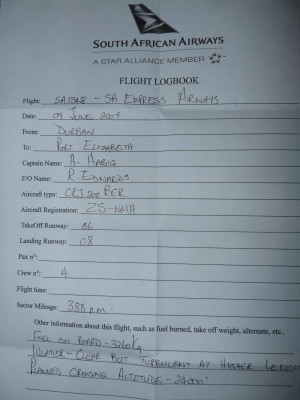 SOUTH AFRICAN AIRWAYS
A STAR ALLIANCE MEMBER
FLIGHT LOGBOOK
Flight: - SA EXPRESS AIRWAYS
Date: 09 JUNE 2009
From: DURBAN
To: PORT ELIZABETH
Captain Name: A.
F/O Name: R. EDWARDS
Aircraft type: CRJ 200 BER
Aircraft Registration: ZS-NMH
TakeOff Runway: 06
Landing Runway: 08
Pax nº:
Crew nº: 4
Flight time:
Sector Mileage: 388
Other information about this flight, such as fuel burned, take off weight, alternate, etc..
FUEL ON BOARD - 3260 Kg
WEATHER - CLEAR BUT TURBULENT AT HIGHER LEVELS
PLANNED CRUISING ALTITUDE - 24000'